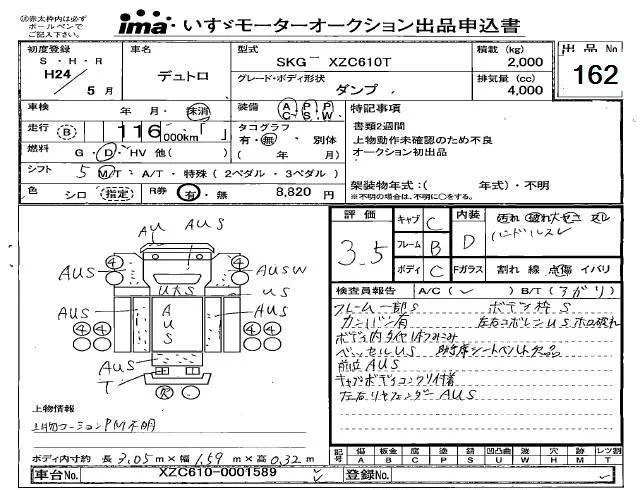 ※赤太枠内は必ず
ボールペンで
ご記入下さい。
ima いすゞモーターオークション出品申込書
初度登録 車名 型式 積載 (kg) 出品 No
S・H・R
H24/5 月 デュトロ SKG－ XZC610T 2,000 162
グレード・ボディ形状 排気量 (cc)
ダンプ 4,000
車検 年 月・抹消 装備 A/C P/S P/W 特記事項
走行 B 116,000km「 」 タコグラフ 有・無 別体 書類2週間
( 年 月) 上物動作未確認のため不良
燃料 G・D・HV 他( ) オークション初出品
シフト 5 M/T・A/T・特殊 (2ペダル・3ペダル)
架装物年式:( 年式)・不明
※不明の場合は、不明に○をする。
色 シロ 指定 R券 有・無 8,820 円
評価 3.5 キャブ C 内装 D 汚れ 破れ大
ハンドルスレ
フレーム B
ボディ C Fガラス 割れ 線 点傷 イバリ
検査員報告 A/C( ) B/T(
フレーム一部S ボデー枠S
カンバン有
ベッセルUS 助手席シートベルト欠品
前立AUS
左右リヤフェンダーAUS
AU AUS
④ ④
AUS AUSW
UAS US
AUS AUS AUS
AUS
T
R
上物情報
上物コーションPM不明
ボディ内寸約 長 3.05 m×幅 1.59 m×高 0.32 m
記号 傷 板金 腐 塗 錆 凹凸曲 波 穴 無 レツ割
A B C P S U W H M T
車台No. XZC610-0001589 登録No.